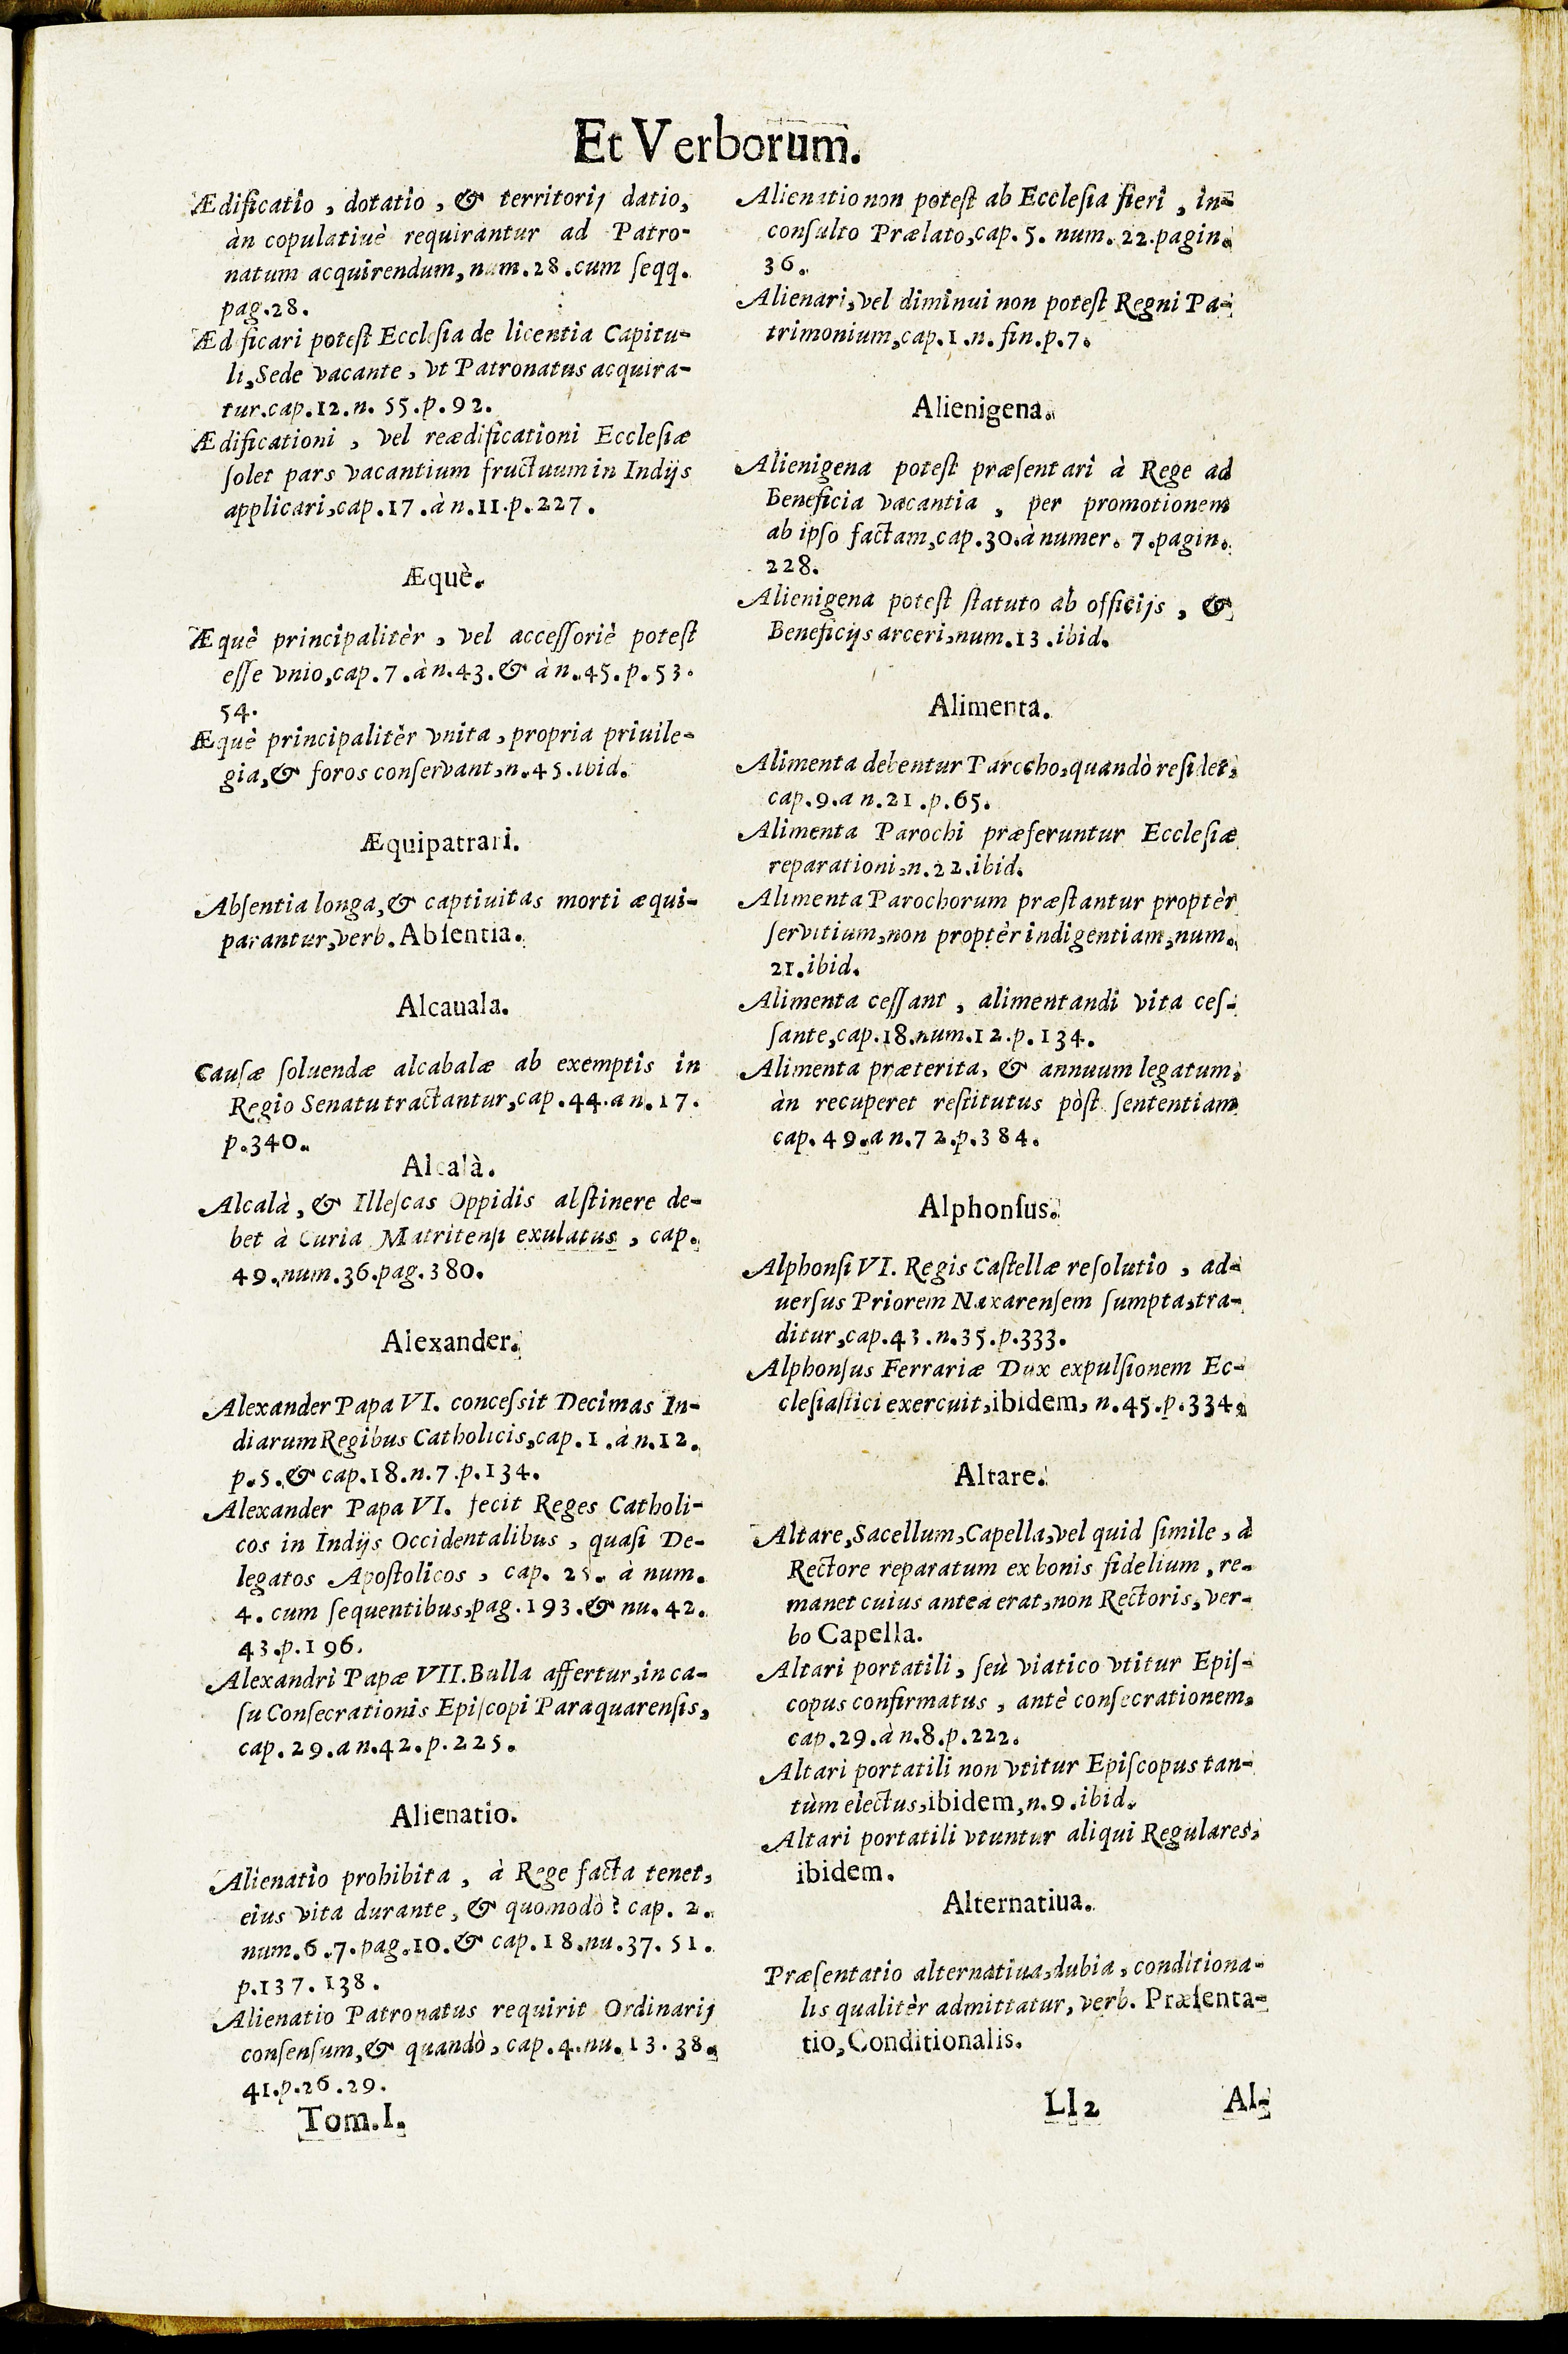 Et Verborum.
Ædificatio, dotatio, & territorij datio,
àn copulatiuè requirantur ad Patro-
natum acquirendum, num.28.cum seqq.
pag.28.
Ædificari potest Ecclesia de licentia Capitu-
li, Sede vacante, vt Patronatus acquira-
tur.cap.12.n. 55.p.92.
Ædificationi, vel reædificationi Ecclesiæ
solet pars vacantium fructuum in Indijs
applicari, cap.17.à n.11.p.227.
Æquè.
Æquè principalitèr, vel accessoriè potest
esse vnio, cap.7.àn.43.& à n.45.p.53.
54.
Æquè principalitèr vnita, propria priuile-
gia, & foros conservant, n.45.ibid.
Æquipatrari.
Absentia longa, & captiuitas morti æqui-
parantur, verb. Absentia.
Alcauala.
Causæ soluendæ alcabalæ ab exemptis in
Regio Senatu tractantur, cap.44.a n.17.
p.340.
Alcalà.
Alcalà, & Illescas Oppidis abstinere de-
bet à Curia Matritensi exulatus, cap.
49.num.36.pag.380.
Alexander.
Alexander Papa VI. concessit Decimas In-
diarum Regibus Catholicis, cap.1.à n.12.
p.5.& cap.18.n.7.p.134.
Alexander Papa VI. fecit Reges Catholi-
cos in Indijs Occidentalibus, quasi De-
legatos Apostolicos, cap. 25. à num.
4. cum sequentibus, pag.193.& nu.42.
43.p.196.
Alexandri Papæ VII. Bulla affertur, in ca-
su Consecrationis Episcopi Paraquarensis,
cap.29.a n.42.p.225.
Alienatio.
Alienatio prohibita, à Rege facta tenet,
eius vita durante, & quomodò? cap. 2.
num.6.7.pag.10.& cap.18.nu.37. 51.
p.137. 138.
Alienatio Patronatus requirit Ordinarij
consensum, & quandò, cap.4.nu.13.38.
41.p.26.29.
Tom.I.
Alienatio non potest ab Ecclesia fieri, in-
consulto Prælato, cap. 5. num. 22.pagin.
36.
Alienari, vel diminui non potest Regni Pa-
trimonium, cap.1.n. fin.p.7.
Alienigena.
Alienigena potest præsentari à Rege ad
Beneficia vacantia, per promotionem
ab ipso factam, cap.30.à numer. 7.pagin.
228.
Alienigena potest statuto ab officijs, &
Beneficijs arceri, num.13.ibid.
Alimenta.
Alimenta debentur Parocho, quandò residet,
cap.9.a n.21.p.65.
Alimenta Parochi præferuntur Ecclesiæ
reparationi, n.22.ibid.
Alimenta Parochorum præstantur proptèr
servitium, non proptèr indigentiam, num.
21.ibid.
Alimenta cessant, alimentandi vita ces-
sante, cap.18.num.12.p.134.
Alimenta præterita, & annuum legatum,
àn recuperet restitutus pòst sententiam
cap.49.a n.72.p.384.
Alphonsus.
Alphonsi VI. Regis Castellæ resolutio, ad-
uersus Priorem Naxarensem sumpta, tra-
ditur, cap.43.n.35.p.333.
Alphonsus Ferrariæ Dux expulsionem Ec-
clesiastici exercuit, ibidem, n.45.p.334.
Altare.
Altare, Sacellum, Capella, vel quid simile, à
Rectore reparatum ex bonis fidelium, re-
manet cuius anteà erat, non Rectoris, ver-
bo Capella.
Altari portatili, seù viatico vtitur Epis-
copus confirmatus, antè consecrationem,
cap.29.à n.8.p.222.
Altari portatili non vtitur Episcopus tan-
tùm electus, ibidem, n.9.ibid.
Altari portatili vtuntur aliqui Regulares,
ibidem.
Alternatiua.
Præsentatio alternatiua, dubia, conditiona-
lis qualitèr admittatur, verb. Præsenta-
tio, Conditionalis.
Ll2 Al-